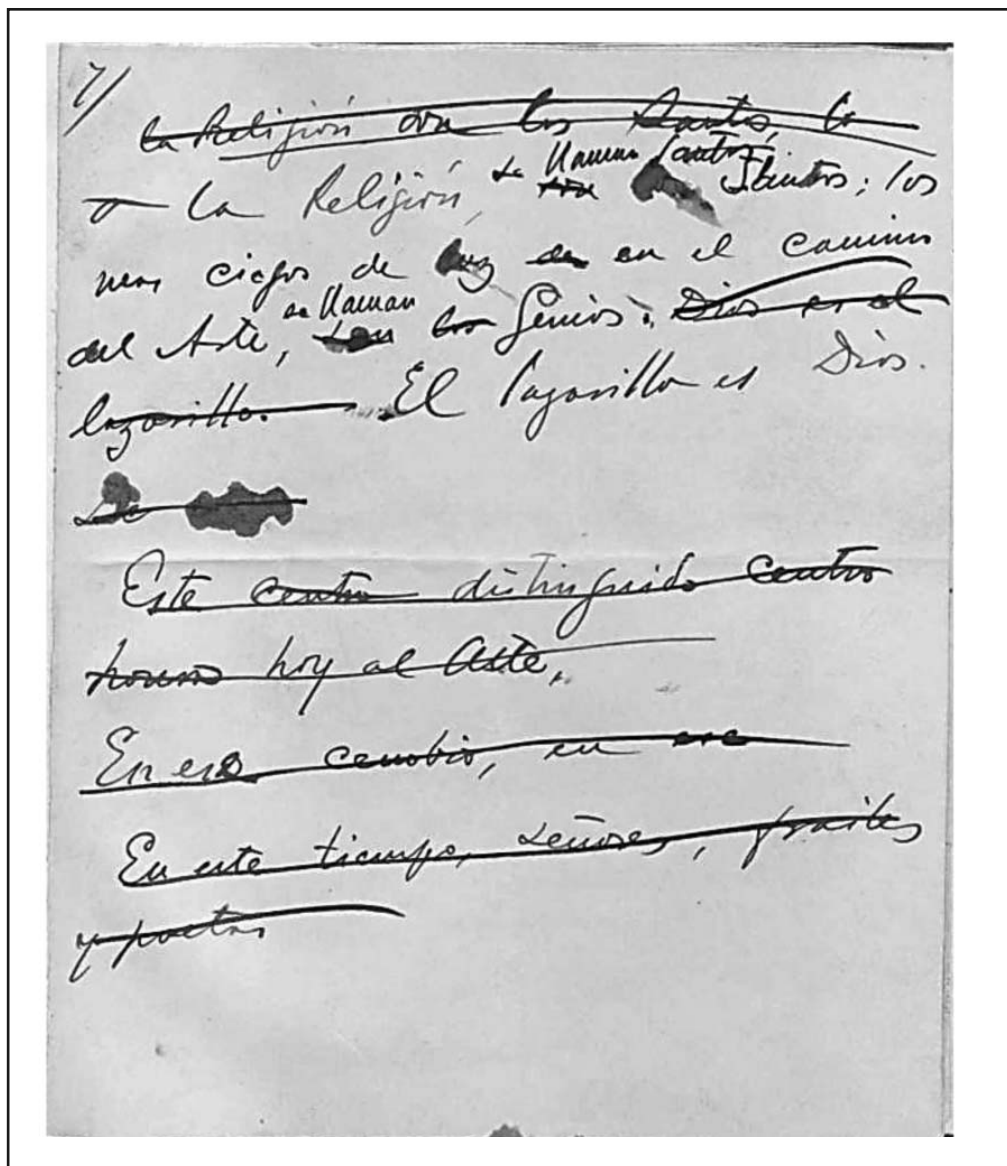 7/
la Religión son los Santos, lo
a la Religión, se llaman Santos; los
mas ciegos de luz en el camino
del Arte, se llaman los Genios. Dios es el
lazarillo. El lazarillo es Dios.
Este centro distinguido centro
honra hoy al Arte,
En ese cenobio, en ese
En este tiempo, señores, frailes
y poetas